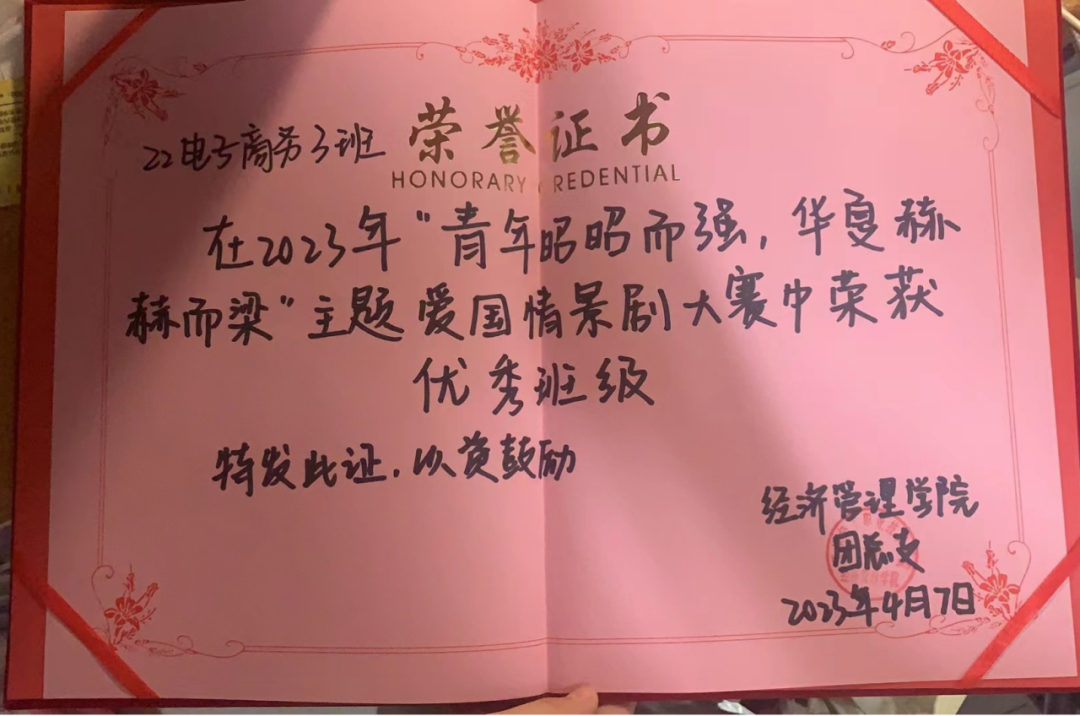 荣誉证书
HONORARY CREDENTIAL
22电子商务3班
在2023年“青年昭昭而强，华夏赫
赫而梁”主题爱国情景剧大赛中荣获
优秀班级
特发此证，以资鼓励
经济管理学院
团总支
2023年4月7日